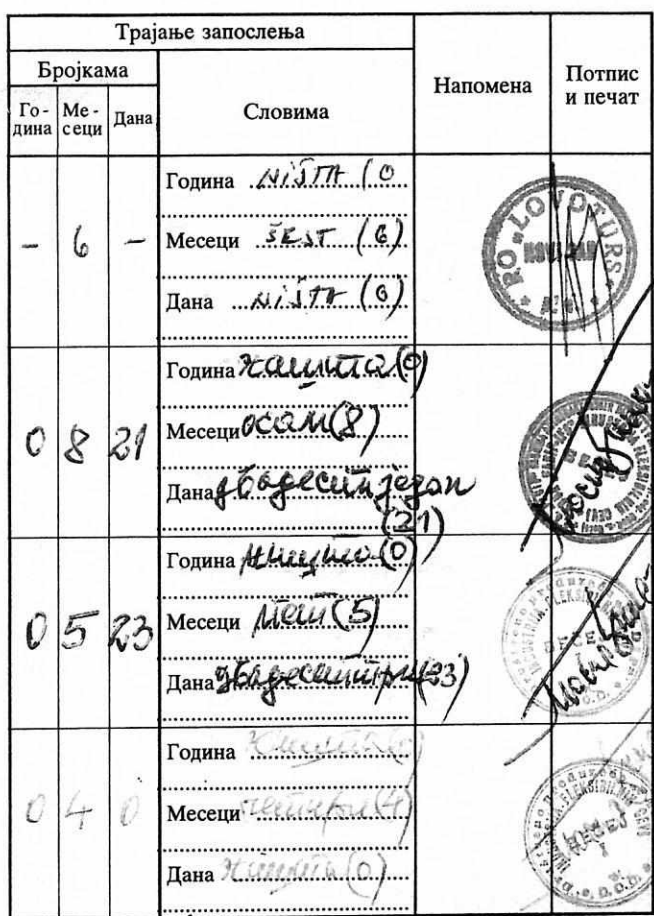 Трајање запослења
Бројкама
Словима
Напомена
Потпис
и печат
Го-
дина
Ме-
сеци
Дана
- 6 -
Година NIŠTA (0
Месеци ŠEST (6)
Дана NIŠTA (0)
RO "LOVOTURS"
NOVI SAD
0 8 21
Година ништа (0)
Месеци осам (8)
Дана двадесет један
(21)
0 5 23
Година ништа (0)
Месеци пет (5)
Дана двадесеттри (23)
0 4 0
Година ништа (0)
Месеци четири (4)
Дана ништа (0)